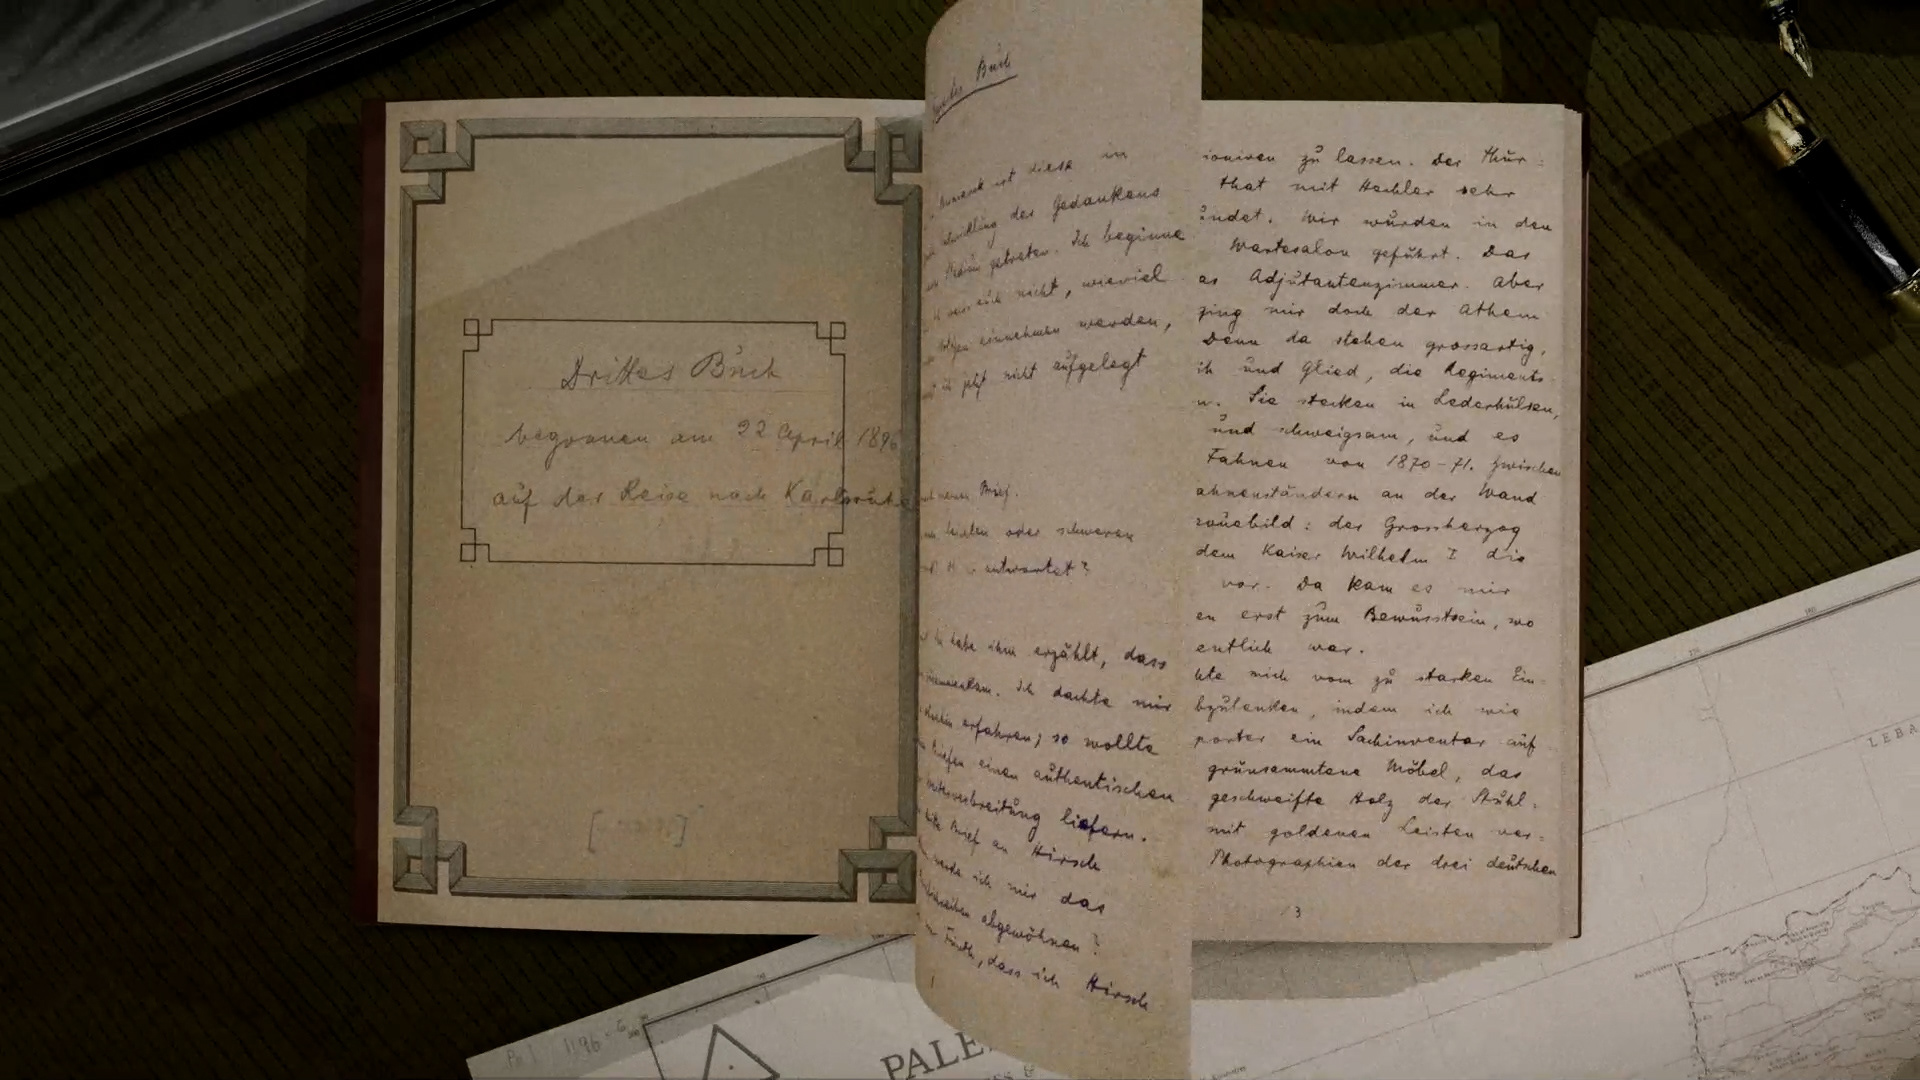 Drittes Buch
begonnen am 22 April 1896
auf der Reise nach Karlsruhe
Buch
ist diese in
des Gedankens
getreten. Ich beginne
nicht, wieviel
einnehmen werden,
ich jetzt nicht aufgelegt
Brief.
oder schweren
antwortet?
habe ihm erzählt, dass
Ich dachte mir
erfahren; so wollte
einen authentischen
liefern.
Brief an Hirsch
werde ich mir das
abgewöhnen?
, dass ich Hirsch
1
ioniren zu lassen. Der Thür=
that mit Hechler sehr
ündet. Wir wurden in den
Wartesalon geführt. Das
as Adjutantenzimmer. Aber
ging mir doch der Athem
Denn da stehen grossartig,
ih und Glied, die Regiments-
n. Sie stecken in Lederhülsen,
und schweigsam, und es
Fahnen von 1870-71. Zwischen
ahnenständern an der Wand
rauebild: der Grossherzog
dem Kaiser Wilhelm I die
vor. Da kam es mir
en erst zum Bewusstsein, wo
entlich war.
hte mich vom zu starken Ein-
bzulenken, indem ich wie
porter ein Sachinventar auf
grünsammtene Möbel, das
geschweifte Holz der Stuhl=
mit goldenen Leisten ver=
Photographien der drei deutschen
3
PALE
LEBA